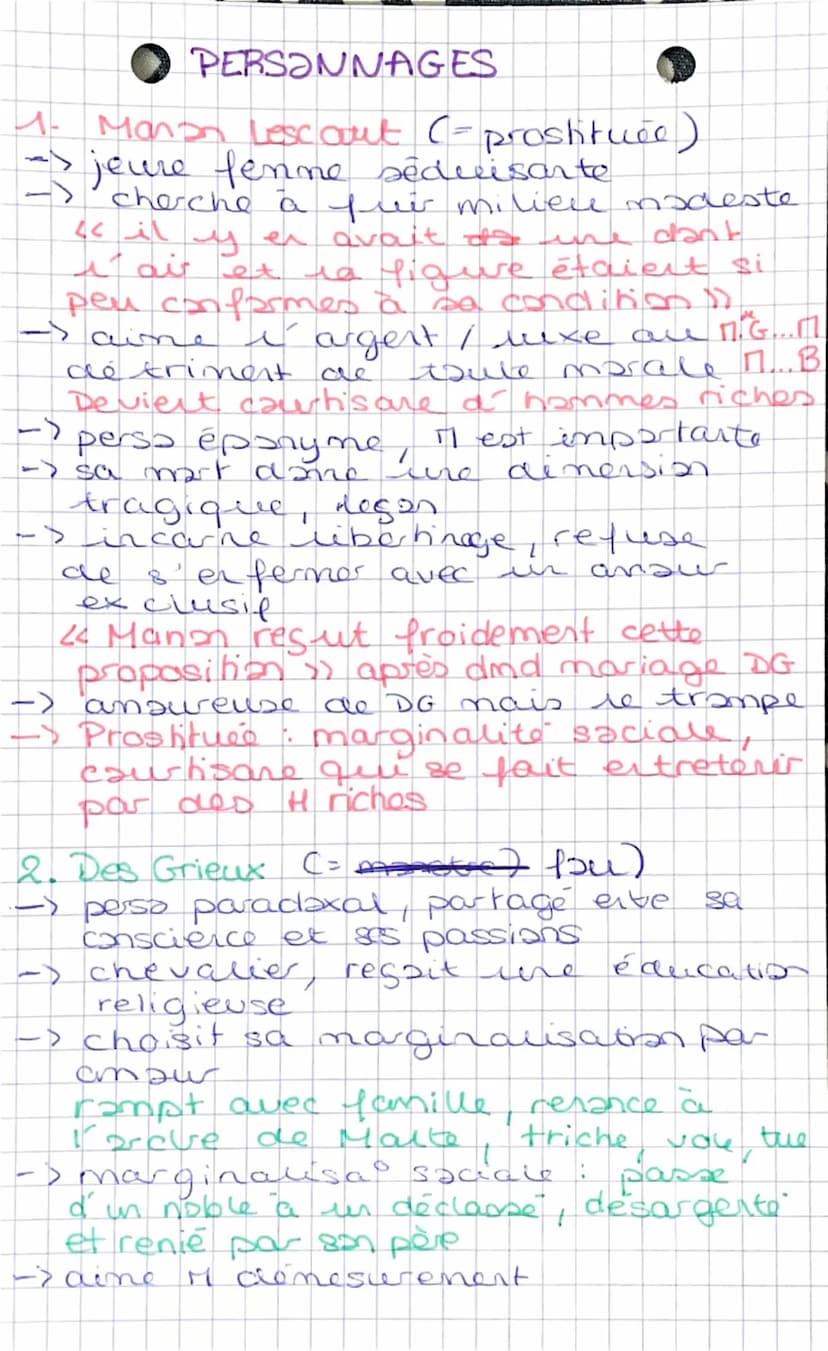 PERSONNAGES
1. Manon Lescaut (= prostituée)
-> jeune femme séduisante
-> cherche à fuir milieu modeste
<< il y en avait une dont
l'air et la figure étaient si
peu conformes à sa condition >>
-> aime l'argent / luxe au M. G...M
détriment de toute morale M...B
Devient courtisane d'hommes riches
-> perso éponyme, M est importante
-> sa mort donne une dimension
tragique, leçon
-> incarne libertinage, refuse
de s'enfermer avec un amour
exclusif
<< Manon reçut froidement cette
proposition >> après dmd mariage DG
-> amoureuse de DG mais le trompe
-> Prostituée : marginalité sociale,
courtisane qui se fait entretenir
par des H riches
2. Des Grieux (= fou)
-> perso paradoxal, partagé entre sa
conscience et ses passions
-> chevalier, reçoit une éducation
religieuse
-> choisit sa marginalisation par
amour
rompt avec famille, renonce à
l'ordre de Malte, triche, vole, tue
-> marginalisa° sociale : passe
d'un noble à un déclassé, désargenté
et renié par son père
-> aime M démesurement